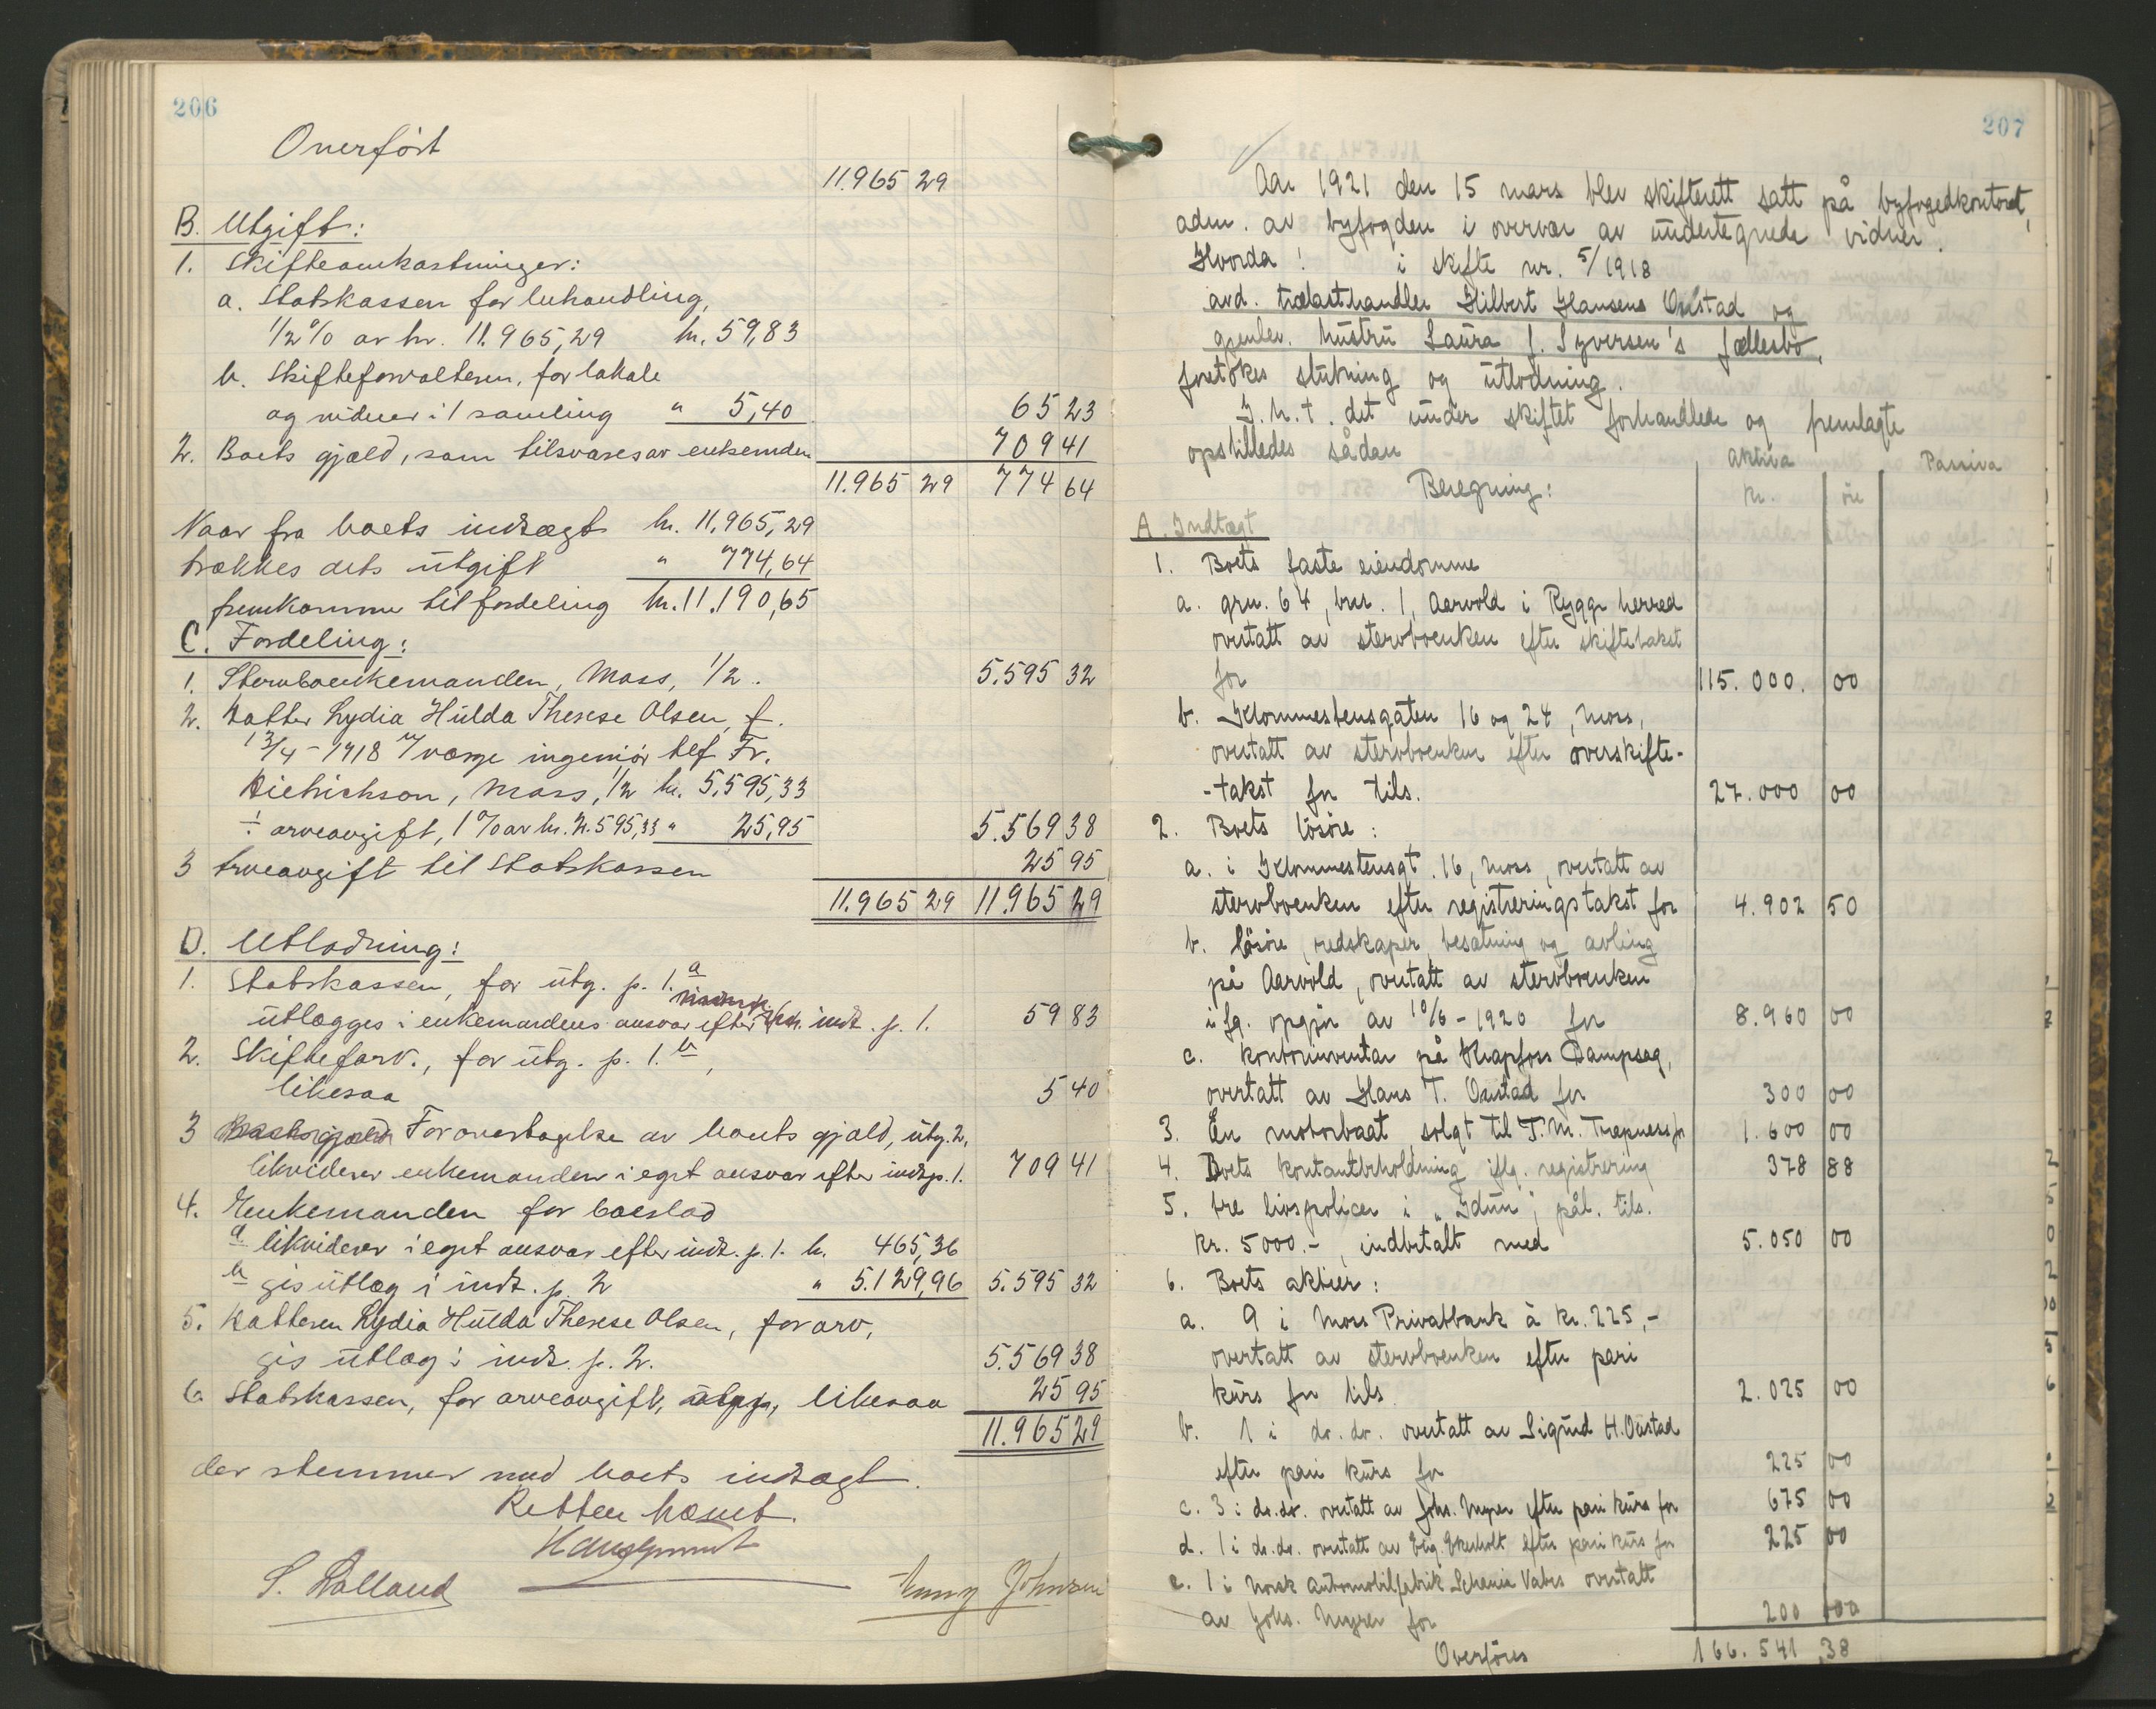 206
Overført
11.965 29
B. Utgift:
1. Skifteomkostninger:
a. Statskassen for behandling,
1/2 % av kr. 11.965,29 kr. 59,83
b. Skifteforvalteren, for lokale
og vidner i 1 samling " 5,40 65 23
2. Boets gjæld, som tilsvares av enkemanden 709 41
11.965 29 774 64
Naar fra boets indtægt kr. 11.965,29
trækkes dets utgift " 774,64
fremkommer til fordeling kr. 11.190,65
C. Fordeling:
1. Stervboenkemanden, Moss, 1/2. 5.595 32
2. Datter Lydia Hulda Therese Olsen, f.
13/4-1918 værge ingeniør Fr.
Dietrichson, Moss, 1/2 kr. 5.595,33
÷ arveavgift, 1 % av kr. 2.595,33 " 25,95 5.569 38
3 Arveavgift til Statskassen 25 95
11.965 29 11.965 29
D. Utlodning:
1. Statskassen, for utg. p. 1.a
utlægges i enkemandens ansvar efter indt. p. 1. 59 83
2. Skifteforv., for utg. p. 1.b,
likesaa 5 40
3 For overtagelse av boets gjæld, utg. 2,
likviderer enkemanden i eget ansvar efter indt. p. 1. 709 41
4. Enkemanden for boeslod
a likviderer i eget ansvar efter indt. p. 1. kr. 465,36
b gis utlæg i indt. p. 2 " 5.129,96 5.595 32
5. Datteren Lydia Hulda Therese Olsen, for arv,
gis utlæg i indt. p. 2. 5.569 38
6 Statskassen, for arveavgift, likesaa 25 95
11.965 29
der stemmer med boets indtægt.
Retten hævet.
S. Dalland
Johnsen
207
Aar 1921 den 15 mars blev skifterett satt på byfogedkontoret,
adm. av byfogden i overvær av undertegnede vidner.
Hvorda! i skifte nr. 5/1918
avd. trælasthandler Hilbert Hansens Oustad og
gjenlev. hustru Laura f. Syversen's fællesbo,
foretokes slutning og utlodning.
I. h. t. det under skiftet forhandlede og fremlagte
opstilledes sådan Aktiva Passiva
Beregning: Kr. øre
A. Indtægt
1. Boets faste eiendomme
a. grn. 64, brn. 1, Aarvold i Rygge herred
overtatt av stervboenken efter skiftetakst
for 115.000. 00
b. Klommestensgaten 16 og 24, Moss,
overtatt av stervboenken efter overskifte-
-takst for tils. 27.000 00
2. Boets løsøre:
a. i Klommestensgt. 16, Moss, overtatt av
stervboenken efter registreringstakst for 4.902 50
b. løsøre, redskaper, besætning og avling
på Aarvold, overtatt av stervboenken
ifg. opgjør av 10/6-1920 for 8.960 00
c. kontorinventar på Krapfoss Dampsag,
overtatt av Hans T. Oustad for 300 00
3. En motorbaat solgt til T. M. 1.600 00
4. Boets kontantbeholdning iflg. registrering 378 88
5. tre livspolicer i "Idun", pål. tils.
kr. 5000.-, indbetalt med 5.050 00
6. Boets aktier:
a. 9 i Moss Privatbank à kr. 225,-
overtatt av stervboenken efter pari
kurs for tils. 2.025 00
b. 1 i do. do. overtatt av Sigurd H. Oustad
efter pari kurs for 225 00
c. 3 i do. do. overtatt av Johs. Myrer efter pari kurs for 675 00
d. 1 i do. do. overtatt av efter pari kurs for 225 00
e. 1 i Norsk Automobilfabrik Scania Vabis overtatt
av Johs. Myrer for 200 00
Overføres 166.541,38